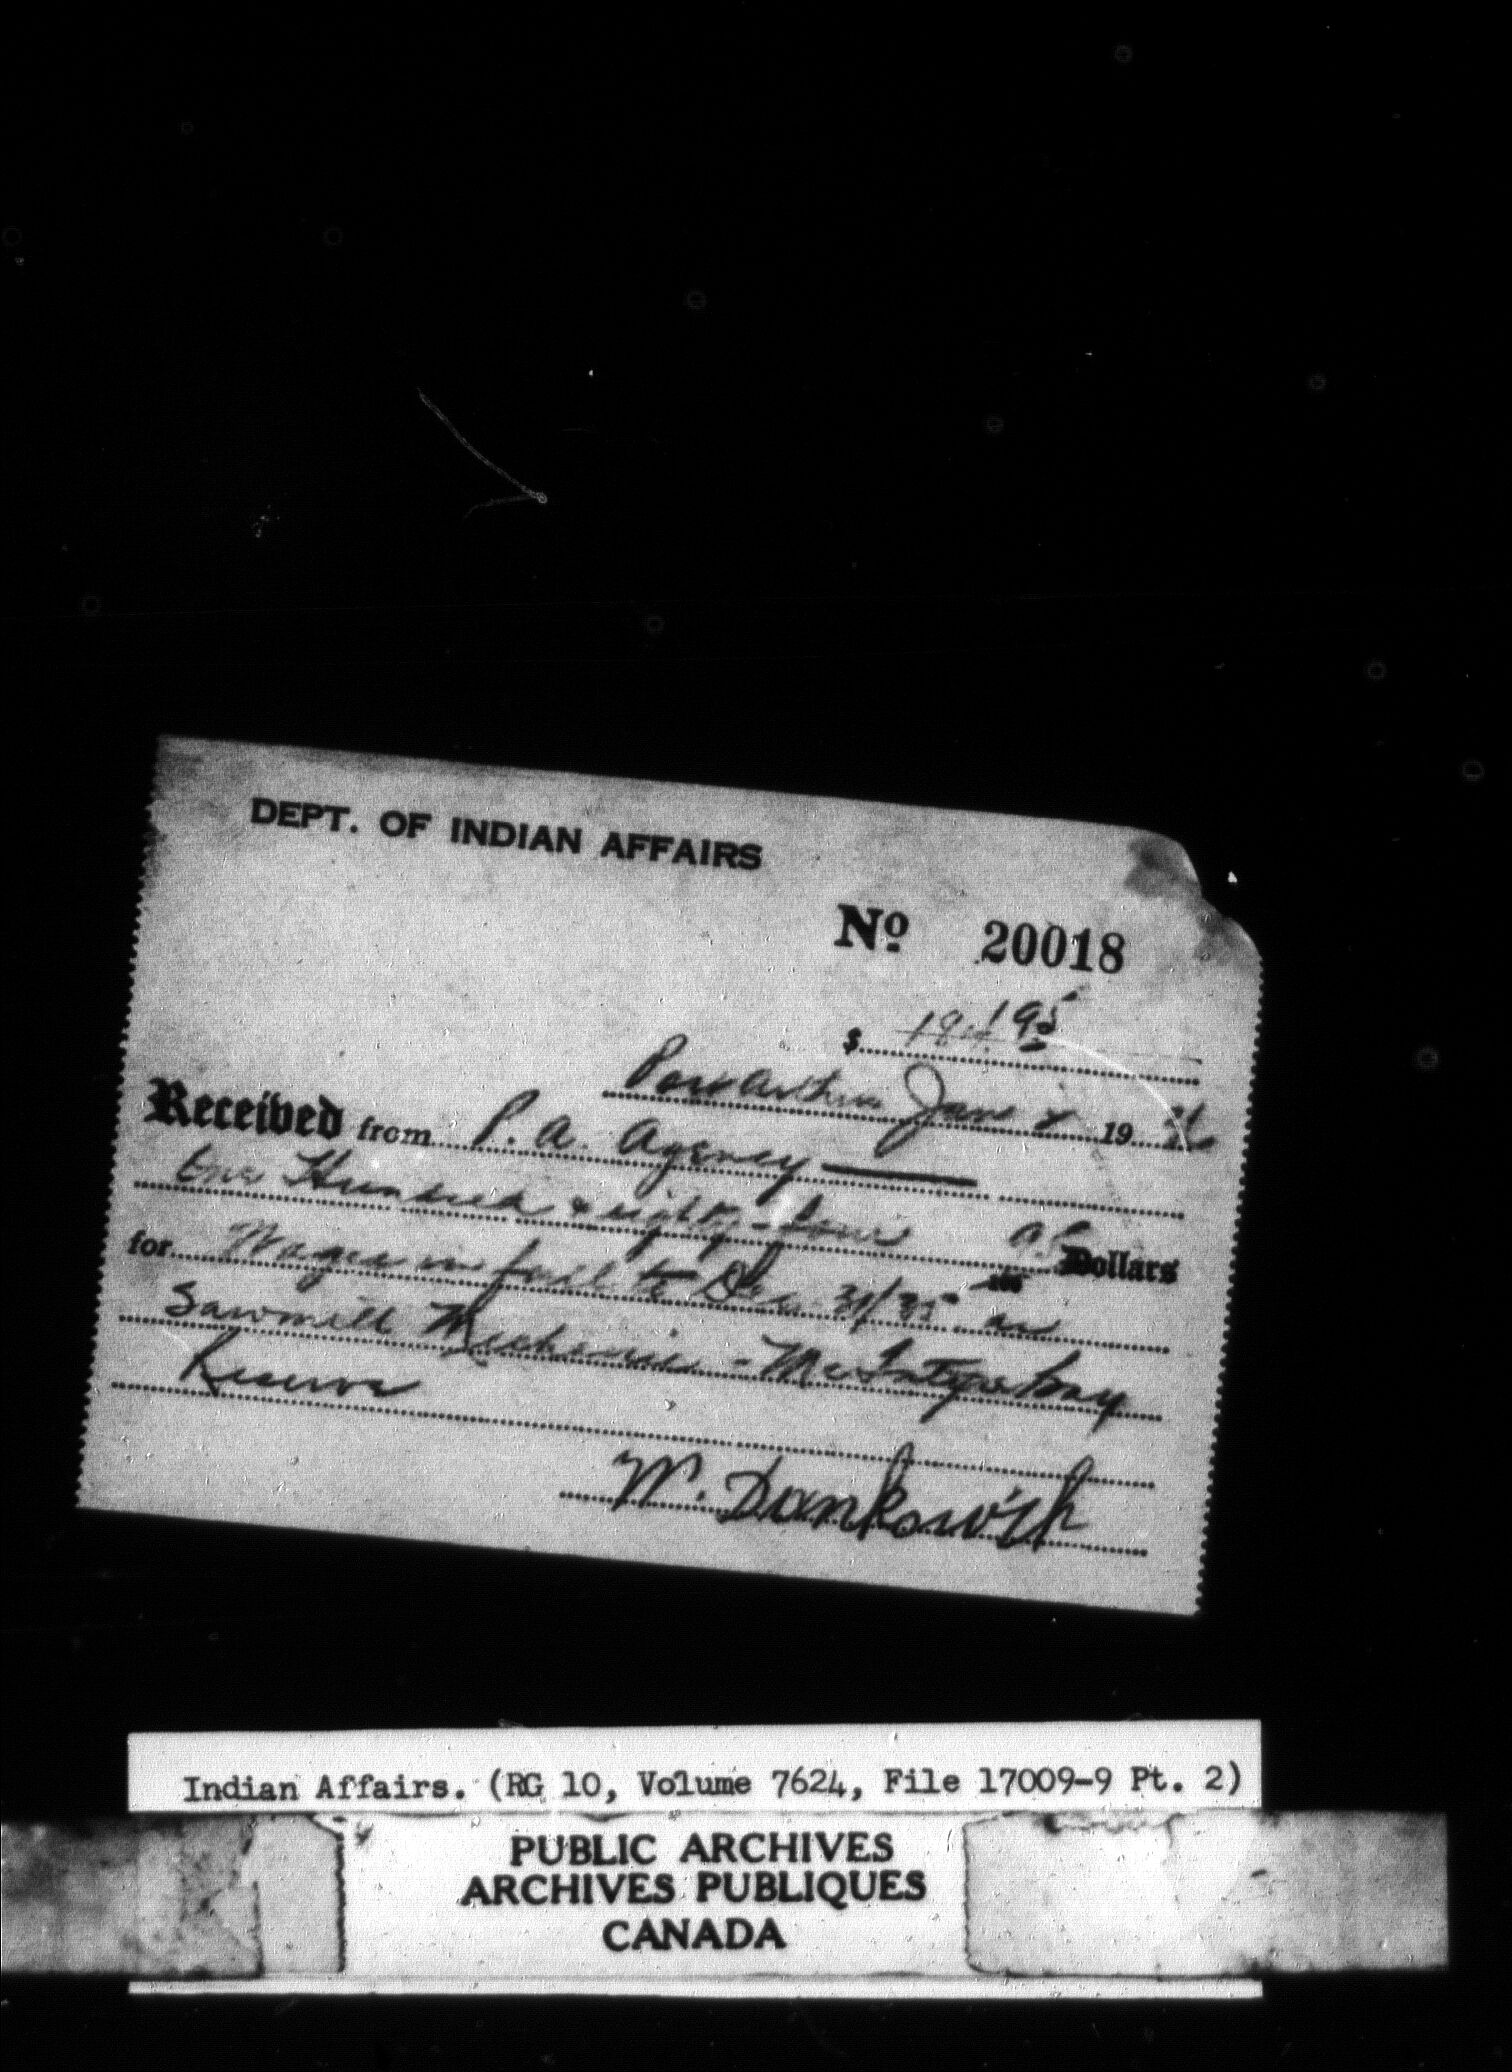 DEPT. OF INDIAN AFFAIRS
No 20018
$ 184.95
Port Arthur Jany 19 36
Received from P. A. Agency
One Hundred & eighty-four 95/100 Dollars
for Wages in full to Dec. 31/35. as
Sawmill Mechanic - McIntyre Bay
Reserve
W. Dankowich
Indian Affairs. (RG 10, Volume 7624, File 17009-9 Pt. 2)
PUBLIC ARCHIVES
ARCHIVES PUBLIQUES
CANADA